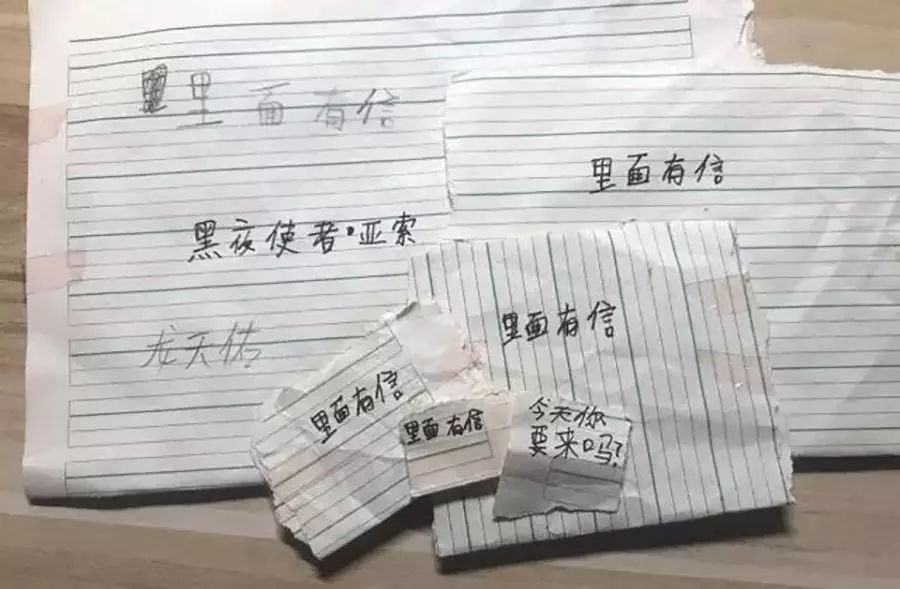 里面有信
黑夜使者·亚索
龙天佑
里面有信
里面有信
里面有信
里面有信
今天你
要来吗?